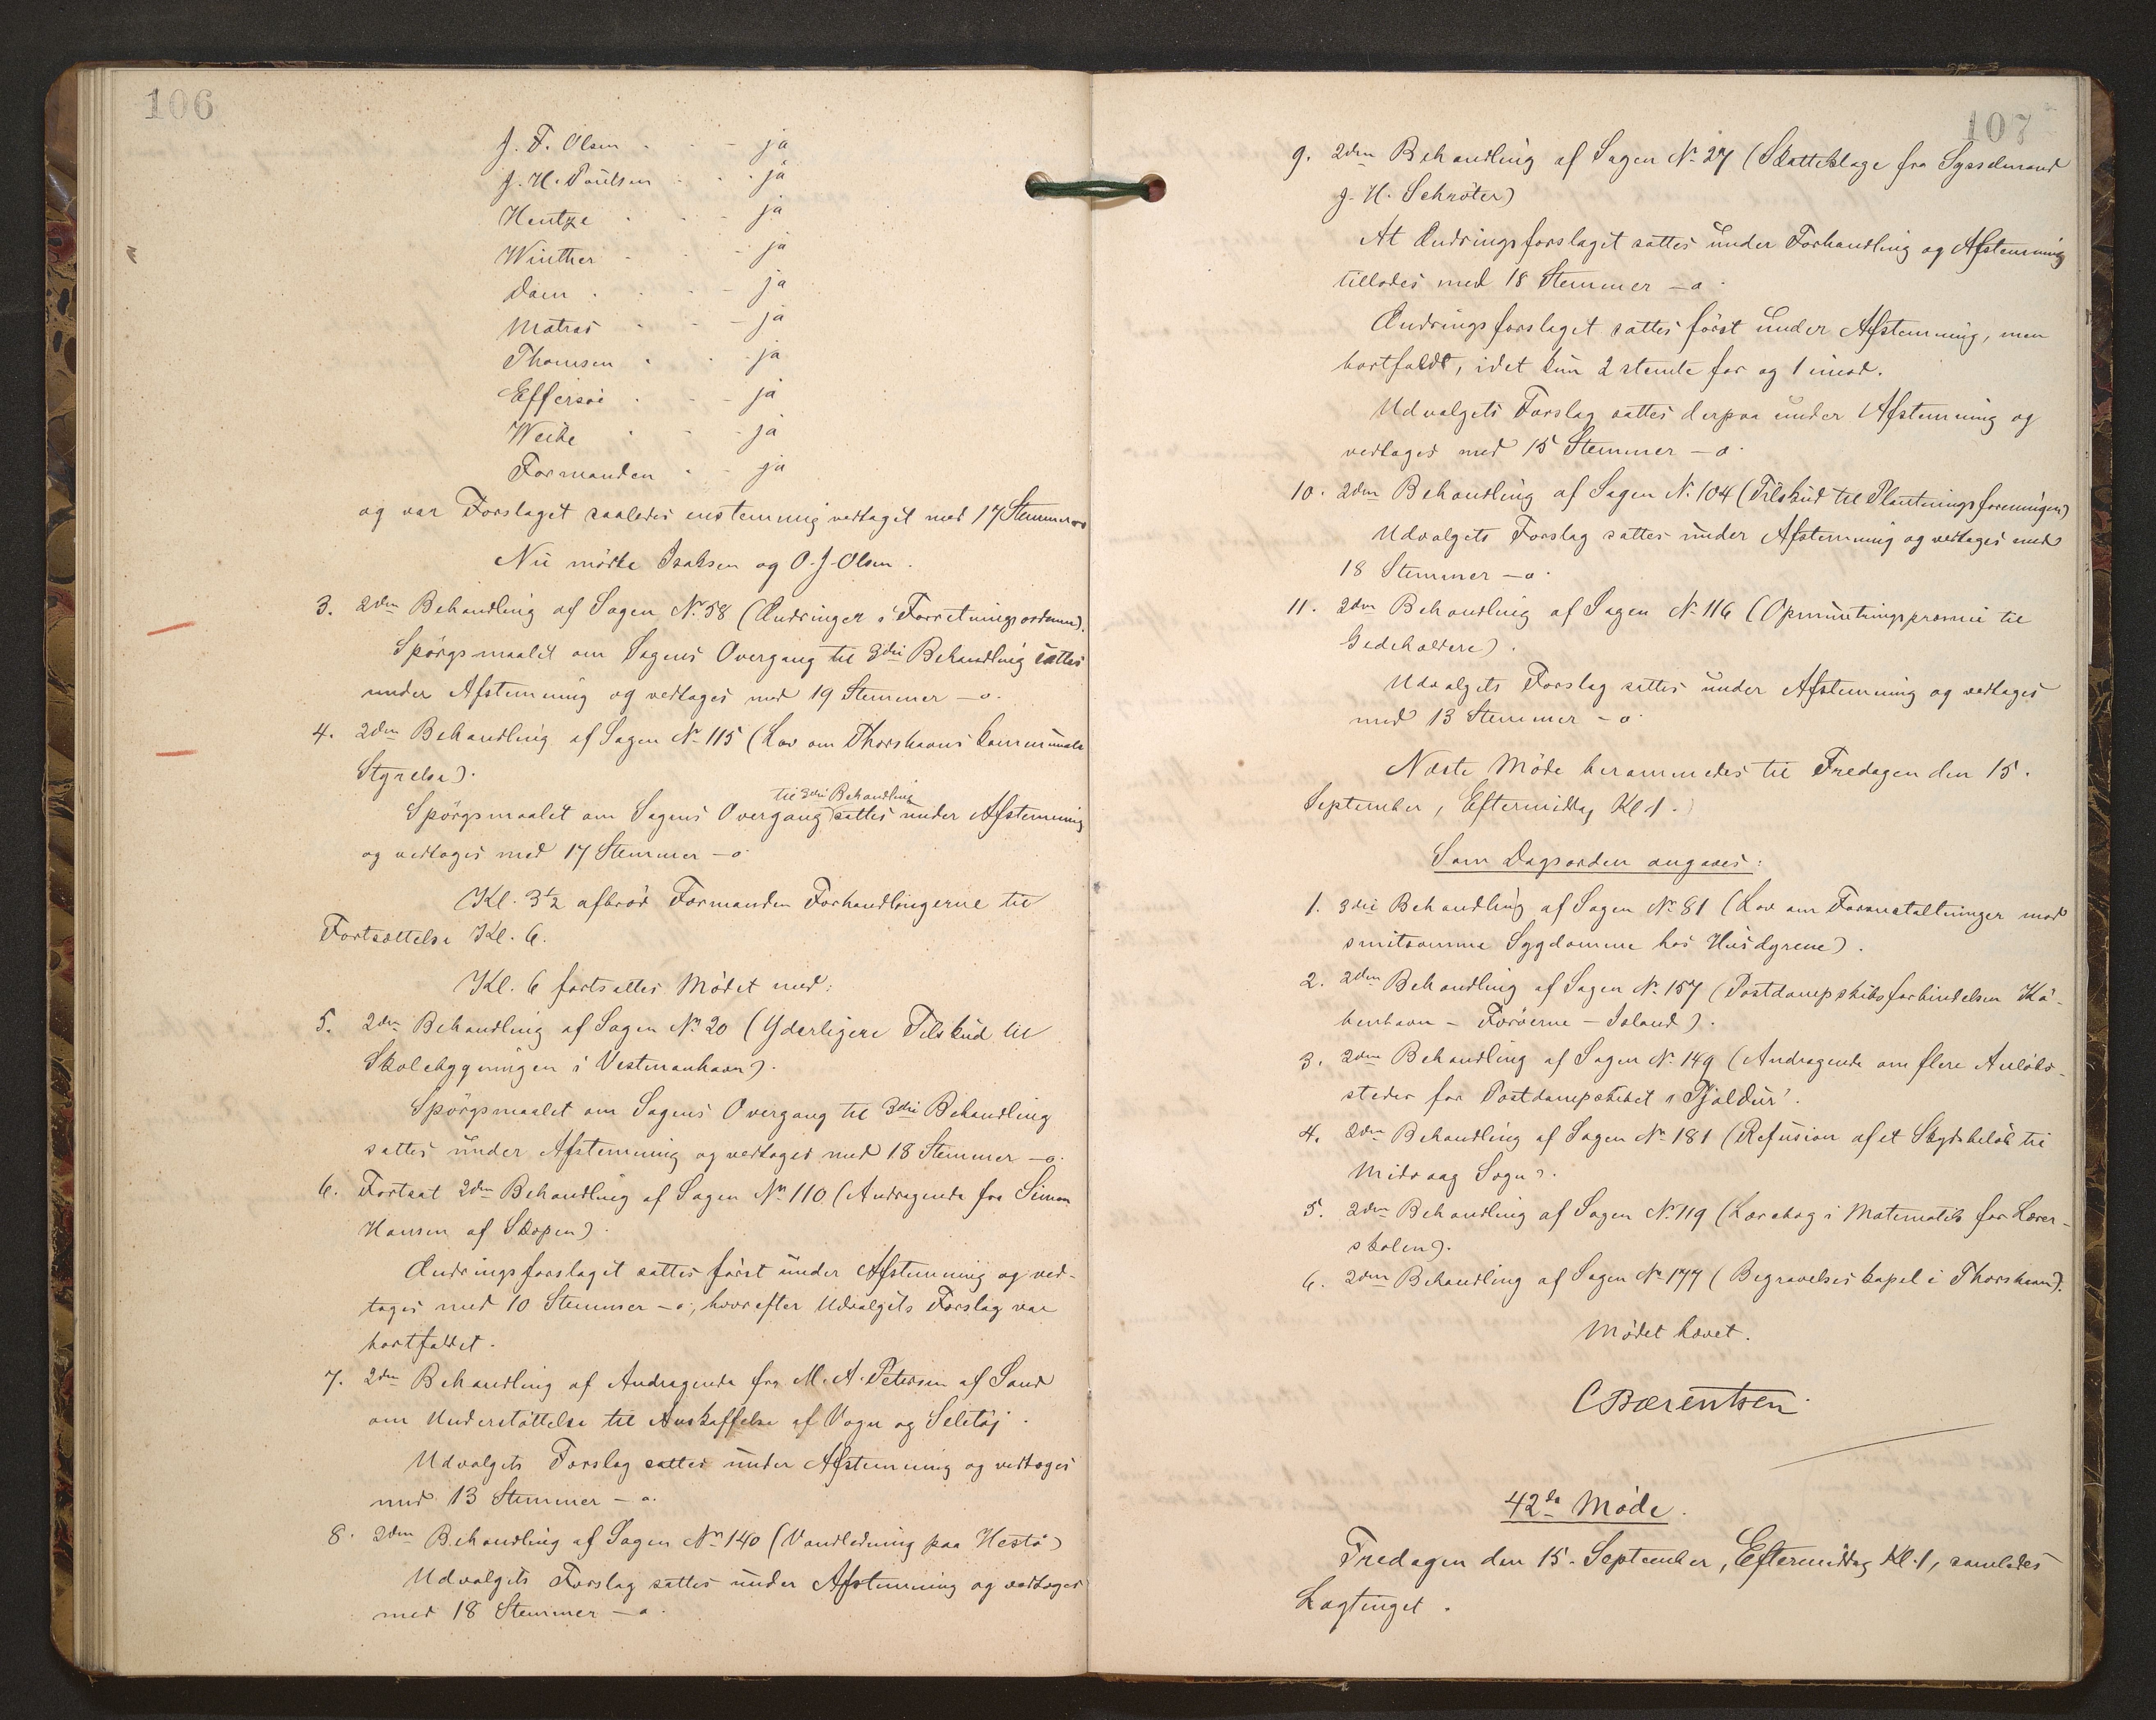 106
J. F. Olsen - - - ja
J. H. Poulsen - - - ja
Hentze - - - ja
Winther - - - ja
Dam - - - ja
Matras - - - ja
Thomsen - - - ja
Effersöe - - - ja
Weihe - - - ja
Formanden - - ja
og var Forslaget saaledes enstemmig vedtaget med 17 Stemmer
Nu mödte Isaksen og O. J. Olsen.
3. 2den Behandling af Sagen No 58 (Ændringer i Forretningsordenen).
Spörgsmaalet om Sagens Overgang til 3die Behandling sattes
under Afstemning og vedtoges med 19 Stemmer - o.
4. 2den Behandling af Sagen No 115 (Lov om Thorshavns kommunale
Styrelse).
Spörgsmaalet om Sagens Overgang til 3die Behandling sattes under Afstemning
og vedtoges med 17 Stemmer - o
Kl. 3½ afbröd Formanden Forhandlingerne til
Fortsættelse Kl. 6.
Kl. 6 fortsattes Mödet med:
5. 2den Behandling af Sagen No 20 (Yderligere Tilskud til
Skolebygningen i Vestmanhavn).
Spörgsmaalet om Sagens Overgang til 3die Behandling
sattes under Afstemning og vedtoges med 18 Stemmer - o.
6. Fortsat 2den Behandling af Sagen No 110 (Andragende fra Simon
Hansen af Skopen).
Ændringsforslaget sattes först under Afstemning og ved-
toges med 10 Stemmer - o, hvorefter Udvalgets Forslag var
bortfaldet.
7. 2den Behandling af Andragende fra M. A. Petersen af Sand
om Understöttelse til Anskaffelse af Vogn og Seletöj.
Udvalgets Forslag sattes under Afstemning og vedtoges
med 13 Stemmer - o.
8. 2den Behandling af Sagen No 140 (Vandledning paa Hestö)
Udvalgets Forslag sattes under Afstemning og vedtoges
med 18 Stemmer - o.
107
9. 2den Behandling af Sagen No 27 (Skatteklage fra Sysselmand
J. H. Schröter)
At Ændringsforslaget sattes under Forhandling og Afstemning
tillodes med 18 Stemmer - o.
Ændringsforslaget sattes först under Afstemning, men
bortfaldt, idet kun 2 stemte for og 1 imod.
Udvalgets Forslag sattes derpaa under Afstemning og
vedtoges med 15 Stemmer - o.
10. 2den Behandling af Sagen No 104 (Tilskud til Plantningsforeningen)
Udvalgets Forslag sattes under Afstemning og vedtoges med
18 Stemmer - o.
11. 2den Behandling af Sagen No 116 (Opmuntringspræmie til
Gedeholdere).
Udvalgets Forslag sattes under Afstemning og vedtoges
med 13 Stemmer - o.
Næste Möde berammedes til Fredagen den 15.
September, Eftermiddag Kl 1.
Som Dagsorden angaves:
1. 3die Behandling af Sagen No 81 (Lov om Foranstaltninger mod
smitsomme Sygdomme hos Husdyrene).
2. 2den Behandling af Sagen No 157 (Postdampskibsforbindelsen Kö-
benhavn - Færöerne - Island).
3. 2den Behandling af Sagen No 149 (Andragende om flere Anlöbs-
steder for Postdampskibet "Tjaldur".
4. 2den Behandling af Sagen No 181 (Refusion af et Skydsbelöb til
Midvaag Sogn).
5. 2den Behandling af Sagen No 119 (Lærebog i Matematik for Lærer-
skolen).
6. 2den Behandling af Sagen No 177 (Begravelseskapel i Thorshavn).
Mödet hævet.
C Bærentsen.
42de Möde.
Fredagen den 15. September, Eftermiddag Kl. 1, samledes
Lagtinget.